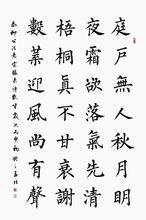 庭戶無人秋月明
夜霜欲落氣先清
梧桐真不甘衰謝
數葉迎風尚有聲